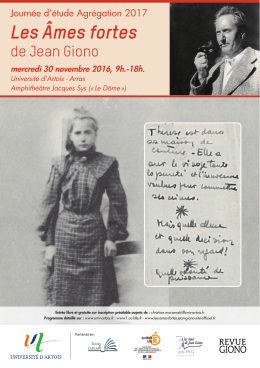 Journée d'étude Agrégation 2017
Les Âmes fortes
de Jean Giono
mercredi 30 novembre 2016, 9h.-18h.
Université d'Artois - Arras
Amphithéâtre Jacques Sys (« Le Dôme »)
Thérèse est dans
sa maison de
- Elle a
sur le visage toute
la pureté et l'innocence
voulues pour commettre
ses crimes.
Mais quelle allure
et quelle décision
dans son regard!
Quelle volonté de
puissance
Entrée libre et gratuite sur inscription préalable auprès de :
Programme détaillé sur :
Partenaires :
UNIVERSITÉ D'ARTOIS
REVUE
GIONO